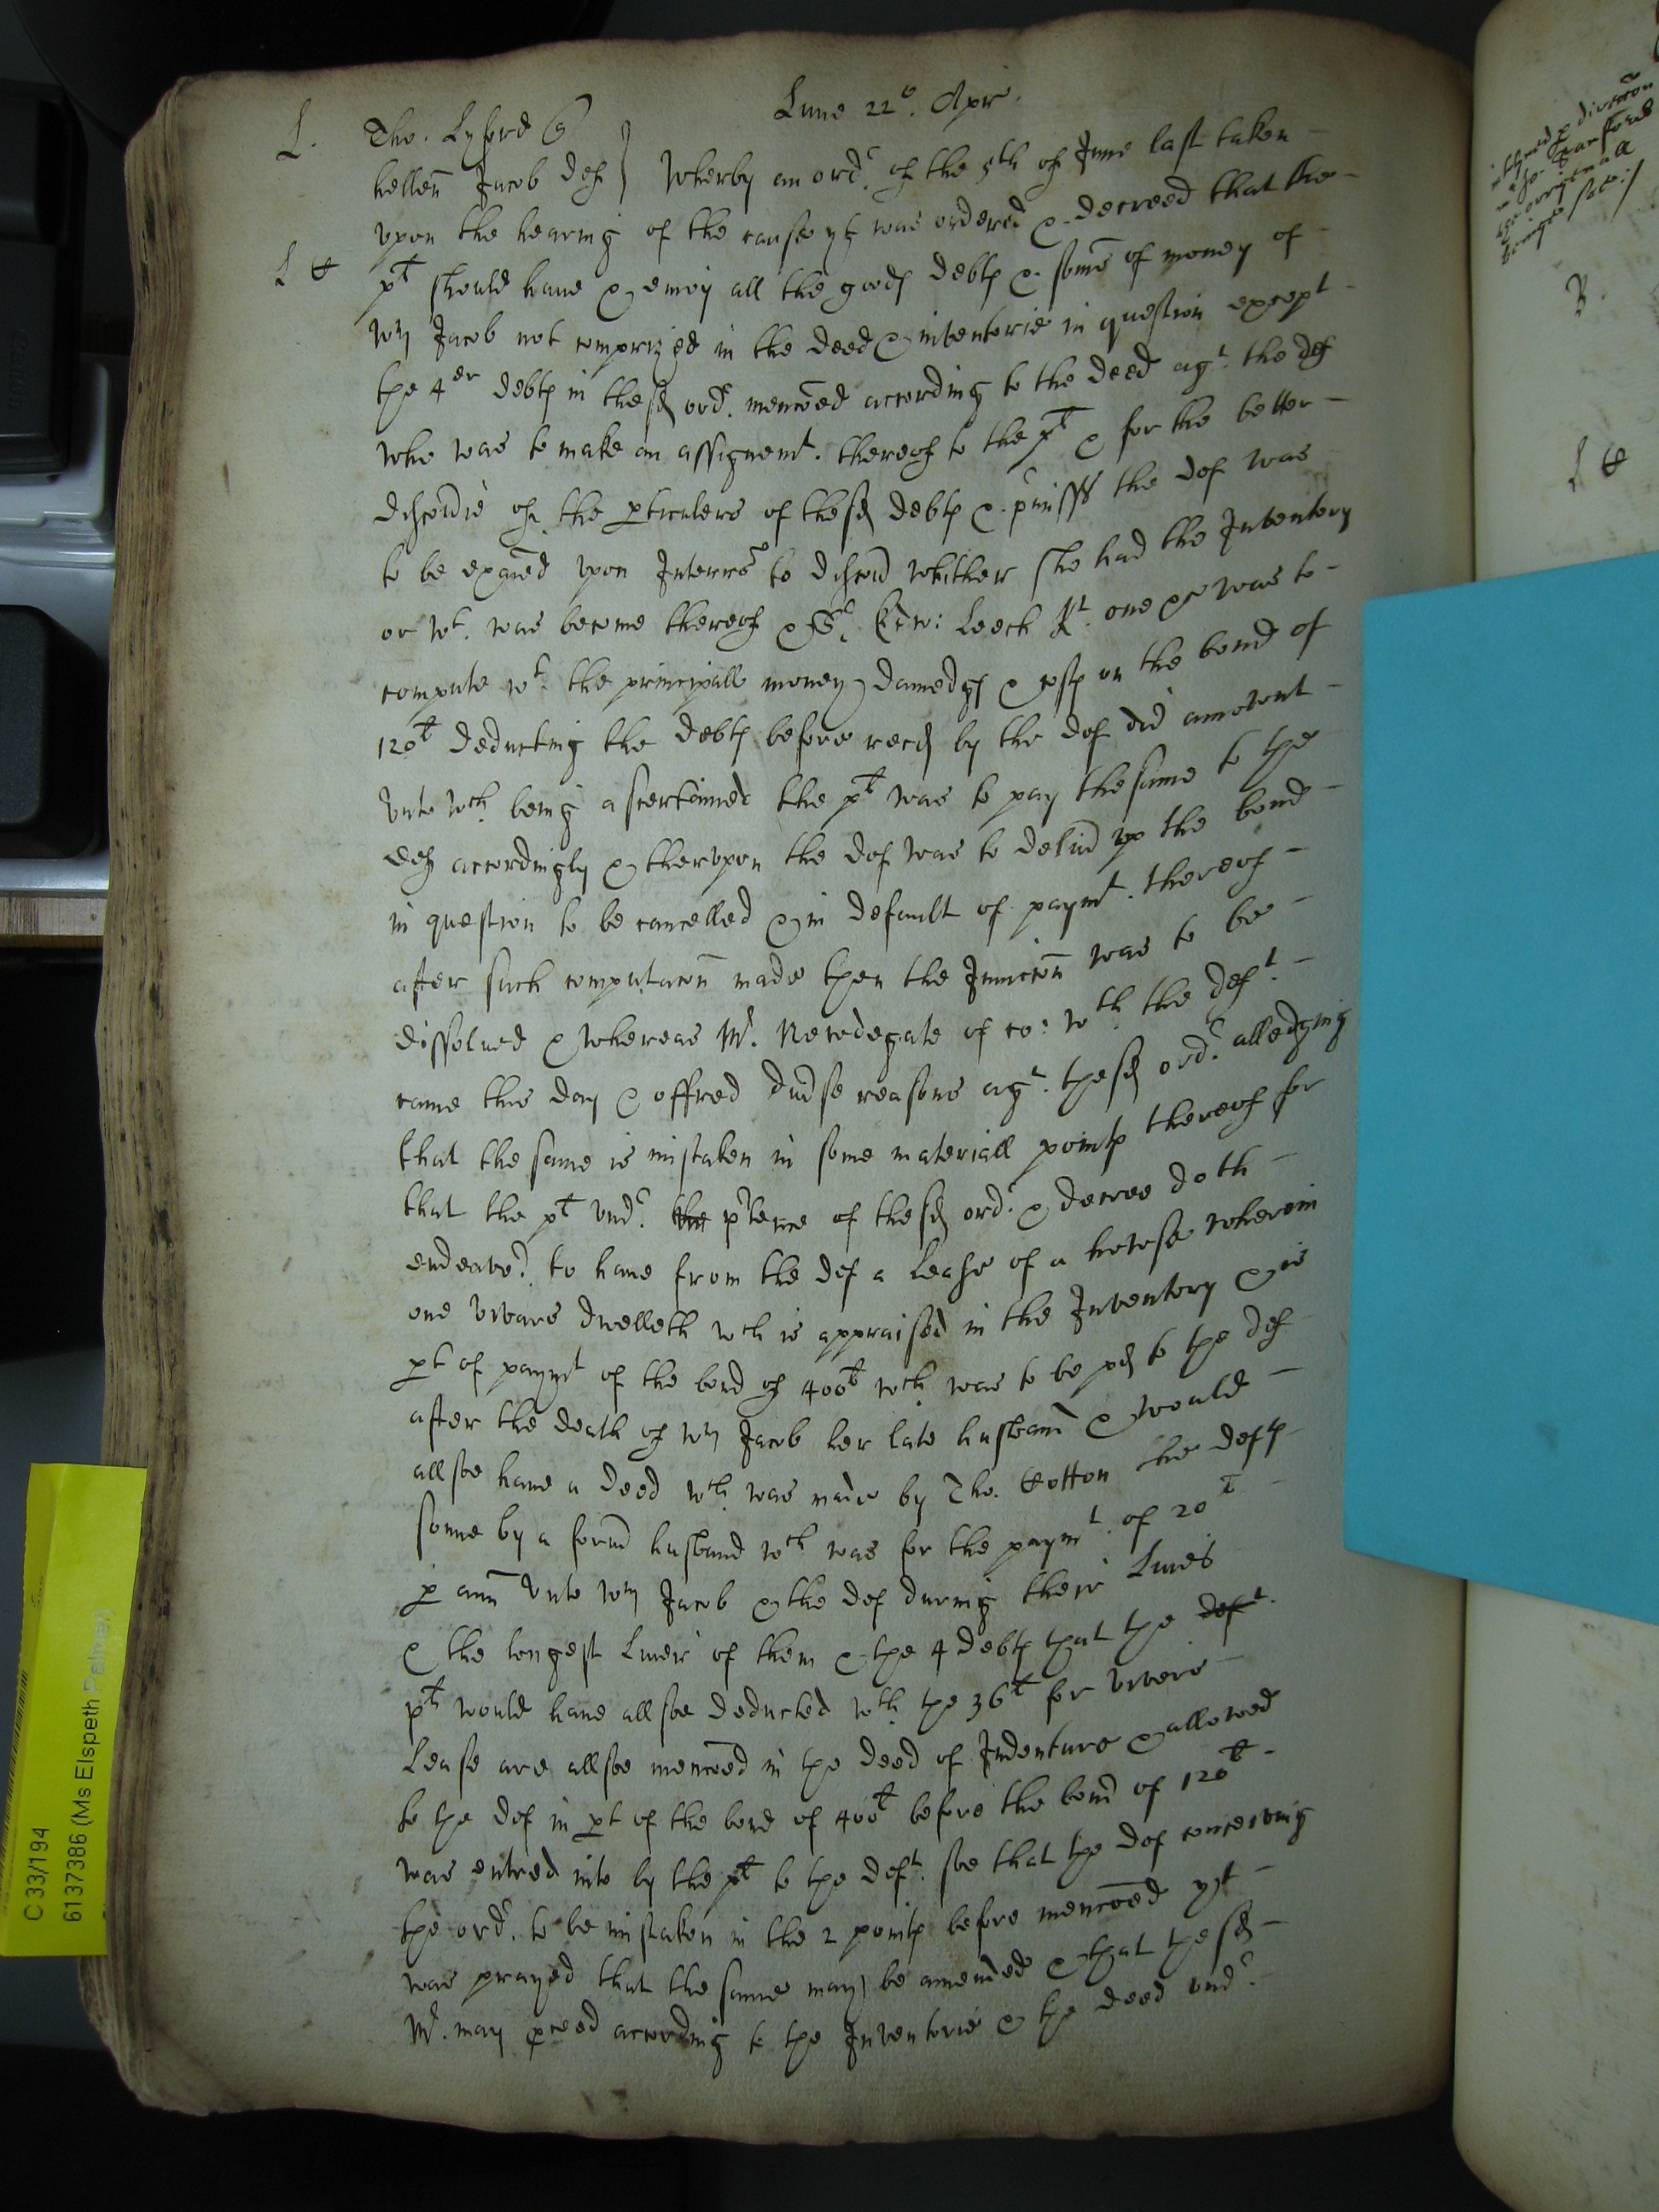 Lune 22º. Apr.
L. Tho. Lyford
hellen Jacob def } Wherby an ordr. of the 5th of June last taken
vpon the hearing of the cause yt was ordered & decreed that the
L pt should haue & enioy all the goods debts & soms of money of
Wm Jacob not comprized in the deed & inventorie in question except
the 4er debts in the sd ordr. mencoed according to the deed agt. the def
who was to make an assignemt. thereof to the pt & for the better
discouie of the pticulers of the sd debts & pmisss the def was
to be exaied vpon Interrs to discou whither she had the Inventory
or wt. was become thereof & Sr. Edw: Leech Kt. one &c was to
compute wt. the principall money damedgs & costs on the bond of
120l deducting the debts before recd by the def did amount
vnto wch being ascertained the pt was to pay the same to the
def accordingly & thervpon the def was to deliu vp the bond
in question to be cancelled & in default of paymt. thereof
after such computacon made then the Iniuncon was to be
dissolued & whereas Mr. Newdegate of co: wth the deft.
came this day & offred diuse reasons agt. the sd ordr. alledging
that the same is mistaken in some materiall points thereof for
that the pt vndr. the ptence of the sd ordr. & decree doth
endeavor. to haue from the def a lease of a howse wherein
one Vivars dwelleth wch is appraised in the Inventory & is
pt of paymt of the bond of 400l wch was to be pd to the def
after the death of Wm Jacob her late husband & would
allsoe haue a deed wch was made by Tho. Cotton the defts
sonne by a form husband wch was for the paymt. of 20l
p ann vnto Wm Jacob & the def during their Liues
& the longest Liuer of them & the 4 debts that the deft.
pt would haue allsoe deducted wth the 36l for Vivers
Lease are allsoe mencoed in the deed of Indenture & allowed
to the def in pt of the bond of 400l before the bond of 120l
was entred into by the pt to the deft. soe that the def conceiuing
the ordr. to be mistaken in the 2 points before mencoed yt
was prayed that the same may be amended & that the sd
Mr. may pceed according to the Inventorie & the deed vndr.
C 33/194
61373786 (Ms Elspeth Palmer)